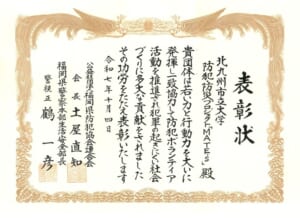 表彰状
北九州市立大学
防犯防災プロジェクトMATEs 殿
貴団体は若い力と行動力を大いに
発揮し一致協力して防犯ボランティア
活動を推進され犯罪の起きにくい社会
づくりに多大な貢献をされました
その功労をたたえ表彰いたします
令和七年十月四日
公益社団法人福岡県防犯協会連合会
会長 土屋直知
福岡県警察本部生活安全部長
警視正 鶴 一彦